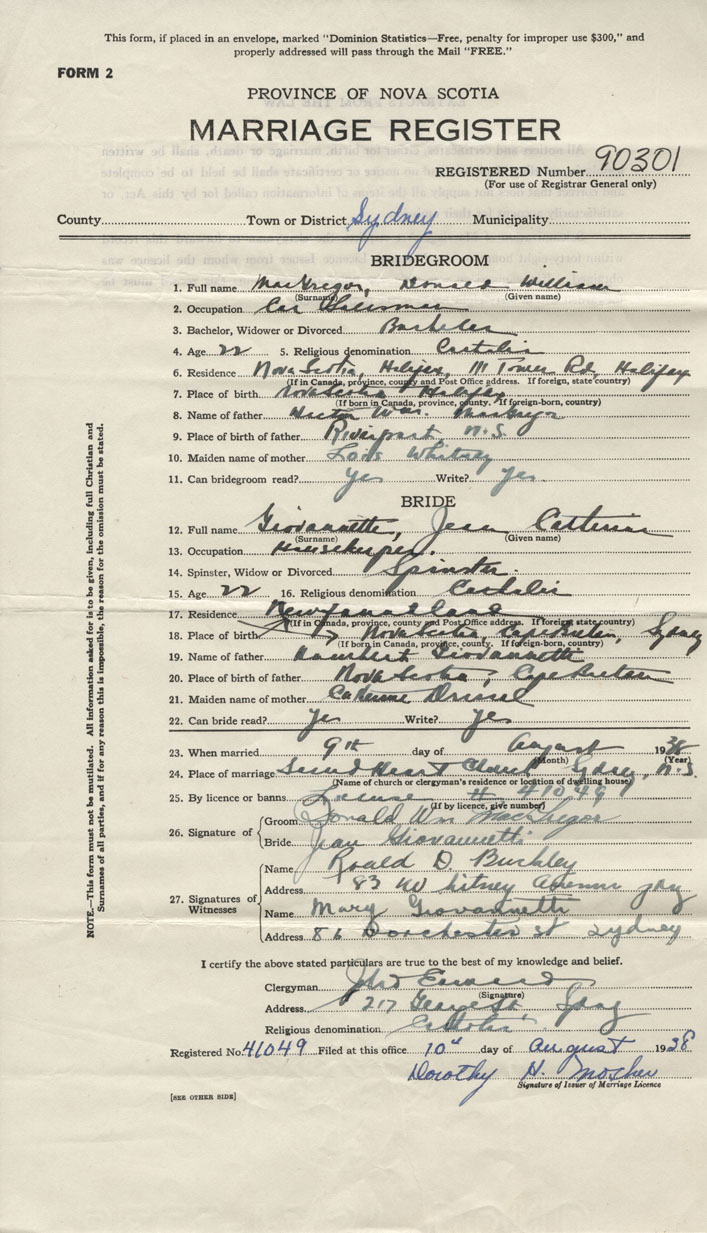 This form, if placed in an envelope, marked "Dominion Statistics—Free, penalty for improper use $300," and
properly addressed will pass through the Mail "FREE."
FORM 2
PROVINCE OF NOVA SCOTIA
MARRIAGE REGISTER
REGISTERED Number 90301
(For use of Registrar General only)
County Town or District Sydney Municipality
BRIDEGROOM
1. Full name MacGregor, Donald William
(Surname) (Given name)
2. Occupation Car Salesman
3. Bachelor, Widower or Divorced Bachelor
4. Age 22 5. Religious denomination Catholic
6. Residence Nova Scotia, Halifax, 111 Tower Rd, Halifax
(If in Canada, province, county and Post Office address. If foreign, state country)
7. Place of birth Nova Scotia Halifax
(If born in Canada, province, county. If foreign-born, country)
8. Name of father Hector Wm. MacGregor
9. Place of birth of father Riverport N.S.
10. Maiden name of mother Lois Whitney
11. Can bridegroom read? yes Write? yes
BRIDE
12. Full name Giovannette, Jean Catherine
(Surname) (Given name)
13. Occupation Housekeeper.
14. Spinster, Widow or Divorced Spinster
15. Age 22 16. Religious denomination Catholic
17. Residence Newfoundland
(If in Canada, province, county and Post Office address. If foreign state country)
18. Place of birth Nova Scotia, Cape Breton, Sydney
(If born in Canada, province, county. If foreign-born, country)
19. Name of father Giovannette
20. Place of birth of father Nova Scotia, Cape Breton
21. Maiden name of mother Catherine
22. Can bride read? Yes Write? Yes
23. When married 9th day of August 1938
(Month) (Year)
24. Place of marriage Sacred Heart Church, Sydney, N.S
(Name of church or clergyman's residence or location of dwelling house)
25. By licence or banns License # 41049
(If by licence, give number)
26. Signature of Groom Donald Wm MacGregor
Bride Jean Giovannetti
27. Signatures of Witnesses Name Roald D Buckley
Address 83 Whitney Avenue
Name Mary Giovannetti
Address 86 Dorchester St Sydney
I certify the above stated particulars are true to the best of my knowledge and belief.
Clergyman
(Signature)
Address 217 George St.
Religious denomination Catholic
Registered No. 41049 Filed at this office 10th day of August 1938
Dorothy H. Mosher
Signature of Issuer of Marriage Licence
[SEE OTHER SIDE]
NOTE.—This form must not be mutilated. All information asked for is to be given, including full Christian and
Surnames of all parties, and if for any reason this is impossible, the reason for the omission must be stated.